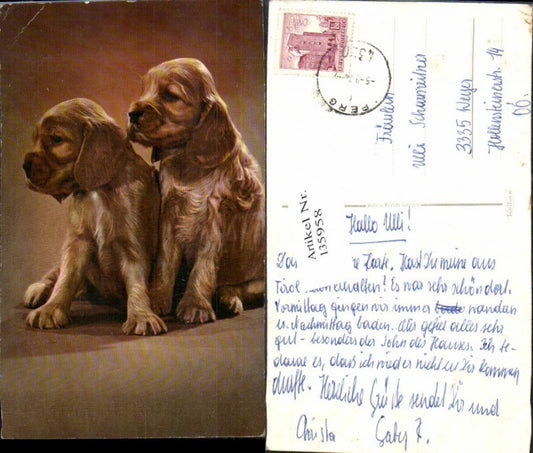 BERG
Fräulein
Ulli
3335 Weyer
Hollensteinerstr. 14
OÖ.
Artikel Nr.
135958
Hallo Ulli!
Karte. Hast Du meine aus
Tirol erhalten! Es war sehr schön dort.
Vormittag gingen wir immer wandern
u. Nachmittag baden. Mir gefiel alles sehr
gut - besonders der Sohn des Hauses. Ich be-
daure es, dass ich wieder nicht zu Dir kommen
durfte. Herzliche Grüße sendet Dir und
Christa Gaby